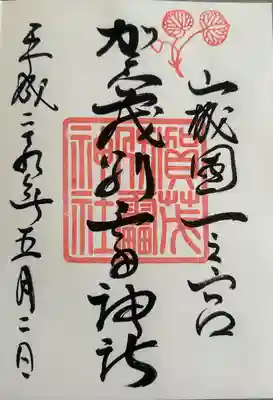 山城國一之宮
賀茂別雷神社
平成二十九年五月二日
賀茂別雷神社